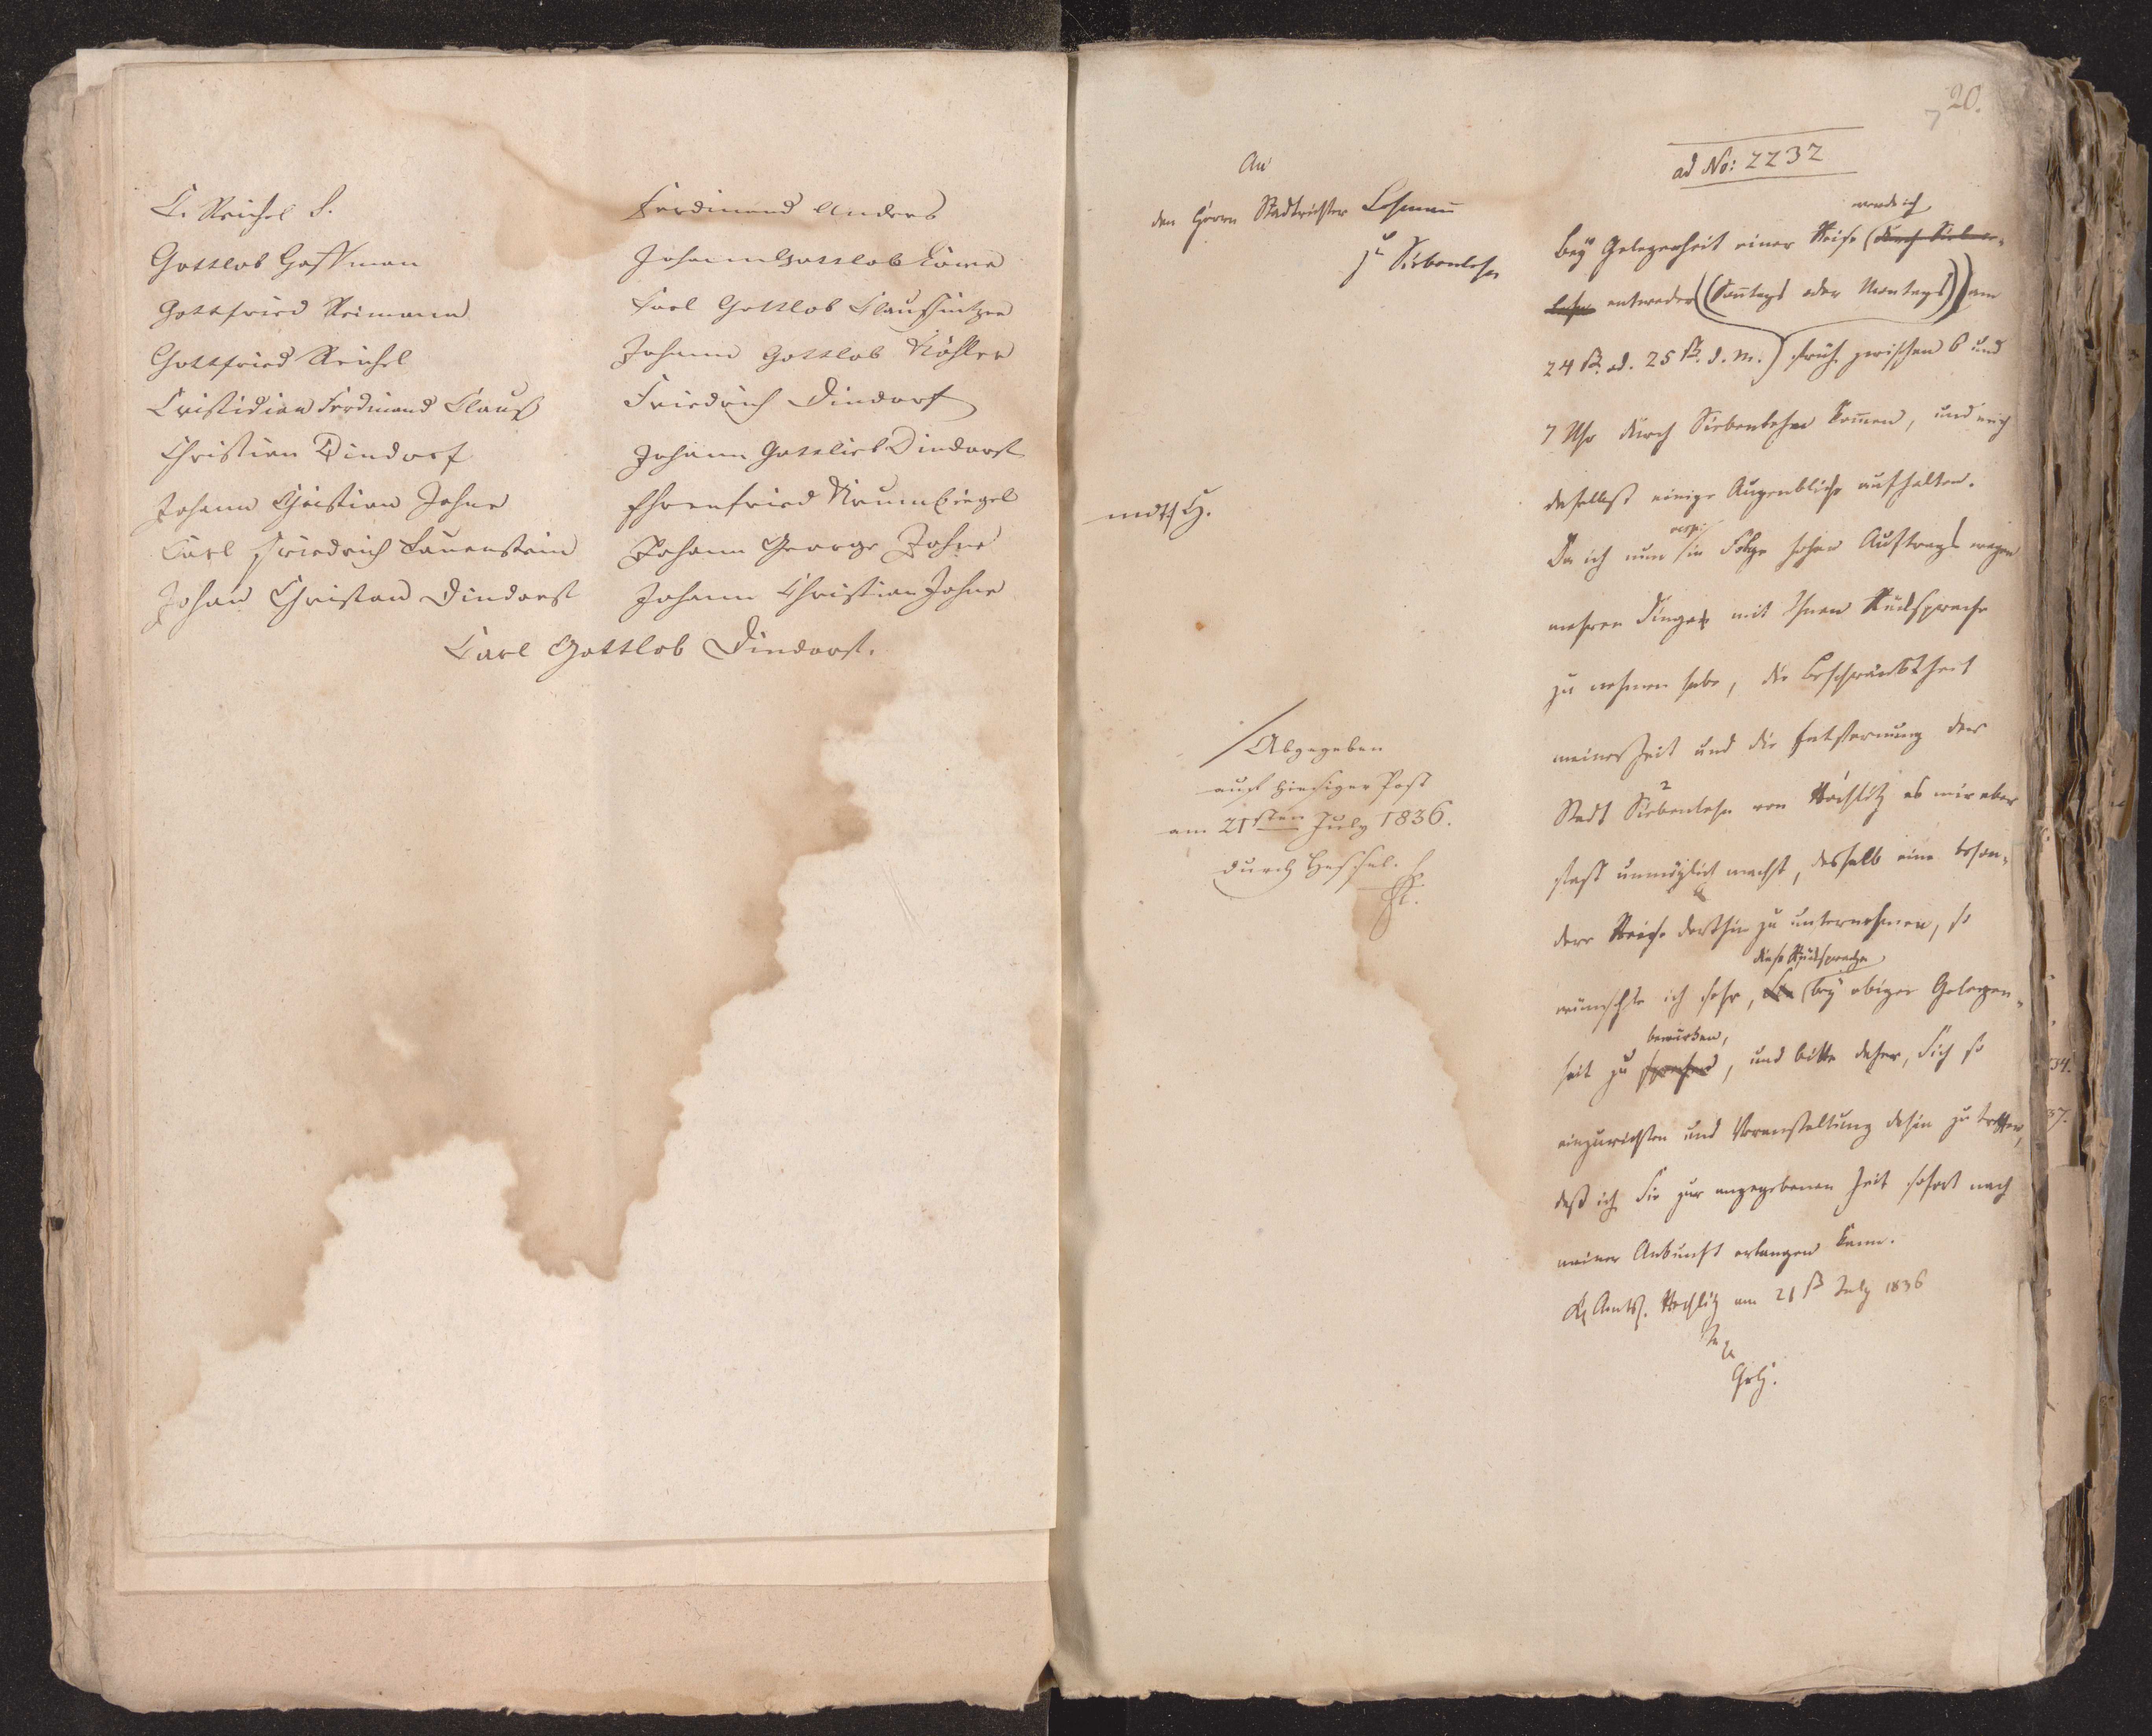 C. Reichel S.
Gottlob Hoffman
Gottfried Reimann
Gottfried Reichel
Cristidian Ferdinand Clauß
Christian Dindorf
Johann Christian Johne
Carl Friedrich Lauenstein
Johan Christan Dindorf
Ferdinand Anders
Johann Gottlob Löwe
Carl Gottlob Claussnitzer
Johann Gottlob Köhler
Friedrich Dindorf
Johann Gottlieb Dindorf
Ehrenfried Krumbiegel
Johann George Johne
Johann Christian Johne
Carl Gottlob Dindorf.
20.
7
ad No: 2232
An
den Herrn Stadtrichter Lehmann
zu Siebenlehn
mdt H.
/Abgegeben
auf hiesiger Post
am 21sten July 1836.
durch Hessel.
werde ich
Bey Gelegenheit einer Reise (durch Sieben-
lehn entweder (Sonntags oder Montags) am
24st. od. 25st. d. M.) früh zwischen 6 und
7 Uhr durch Siebenlehn kommen, und mich
daselbst einige Augenblicke aufhalten.
Da ich nun in Folge hohen Auftrags wegen
mehrer Dinge mit Ihnen Rücksprache
zu nehmen habe, die Beschränktheit
meiner Zeit und die Entfernung der
Stadt Siebenlehn von Rochlitz es mir aber
fast unmöglich macht, deshalb eine beson-
dere Reise dorthin zu unternehmen, so
diese Rücksprache
wünschte ich sehr, Sie (bey obiger Gelegen-
bewirken,
heit zu sprechen, und bitte daher, Sich so
einzurichten und Veranstaltung dahin zu treffen,
daß ich Sie zur angegebenen Zeit sofort nach
meiner Ankunft erlangen kann.
K. Amtsh. Rochlitz am 21st July 1836
34.
37.